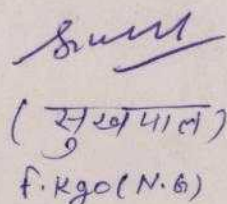 (सुखपाल)
f.Kgo(N.G)